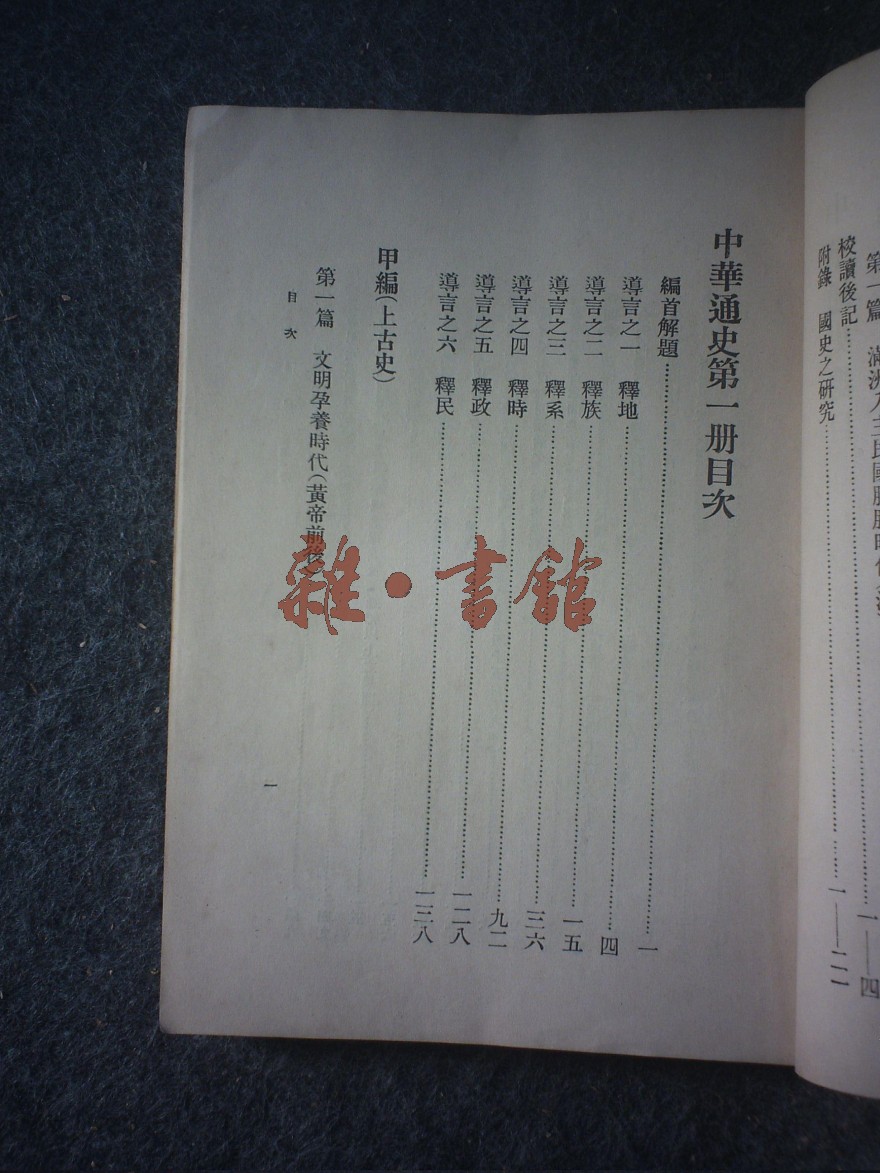 第一篇 滿洲入主民國胚胎時代
校讀後記……一——四
附錄 國史之研究……一——二一
中華通史第一册目次
編首解題……一
導言之一 釋地……四
導言之二 釋族……一五
導言之三 釋系……三六
導言之四 釋時……九二
導言之五 釋政……一二八
導言之六 釋民……一三八
甲編(上古史)
第一篇 文明孕養時代(黃帝前後)
目次
一
雜·書館